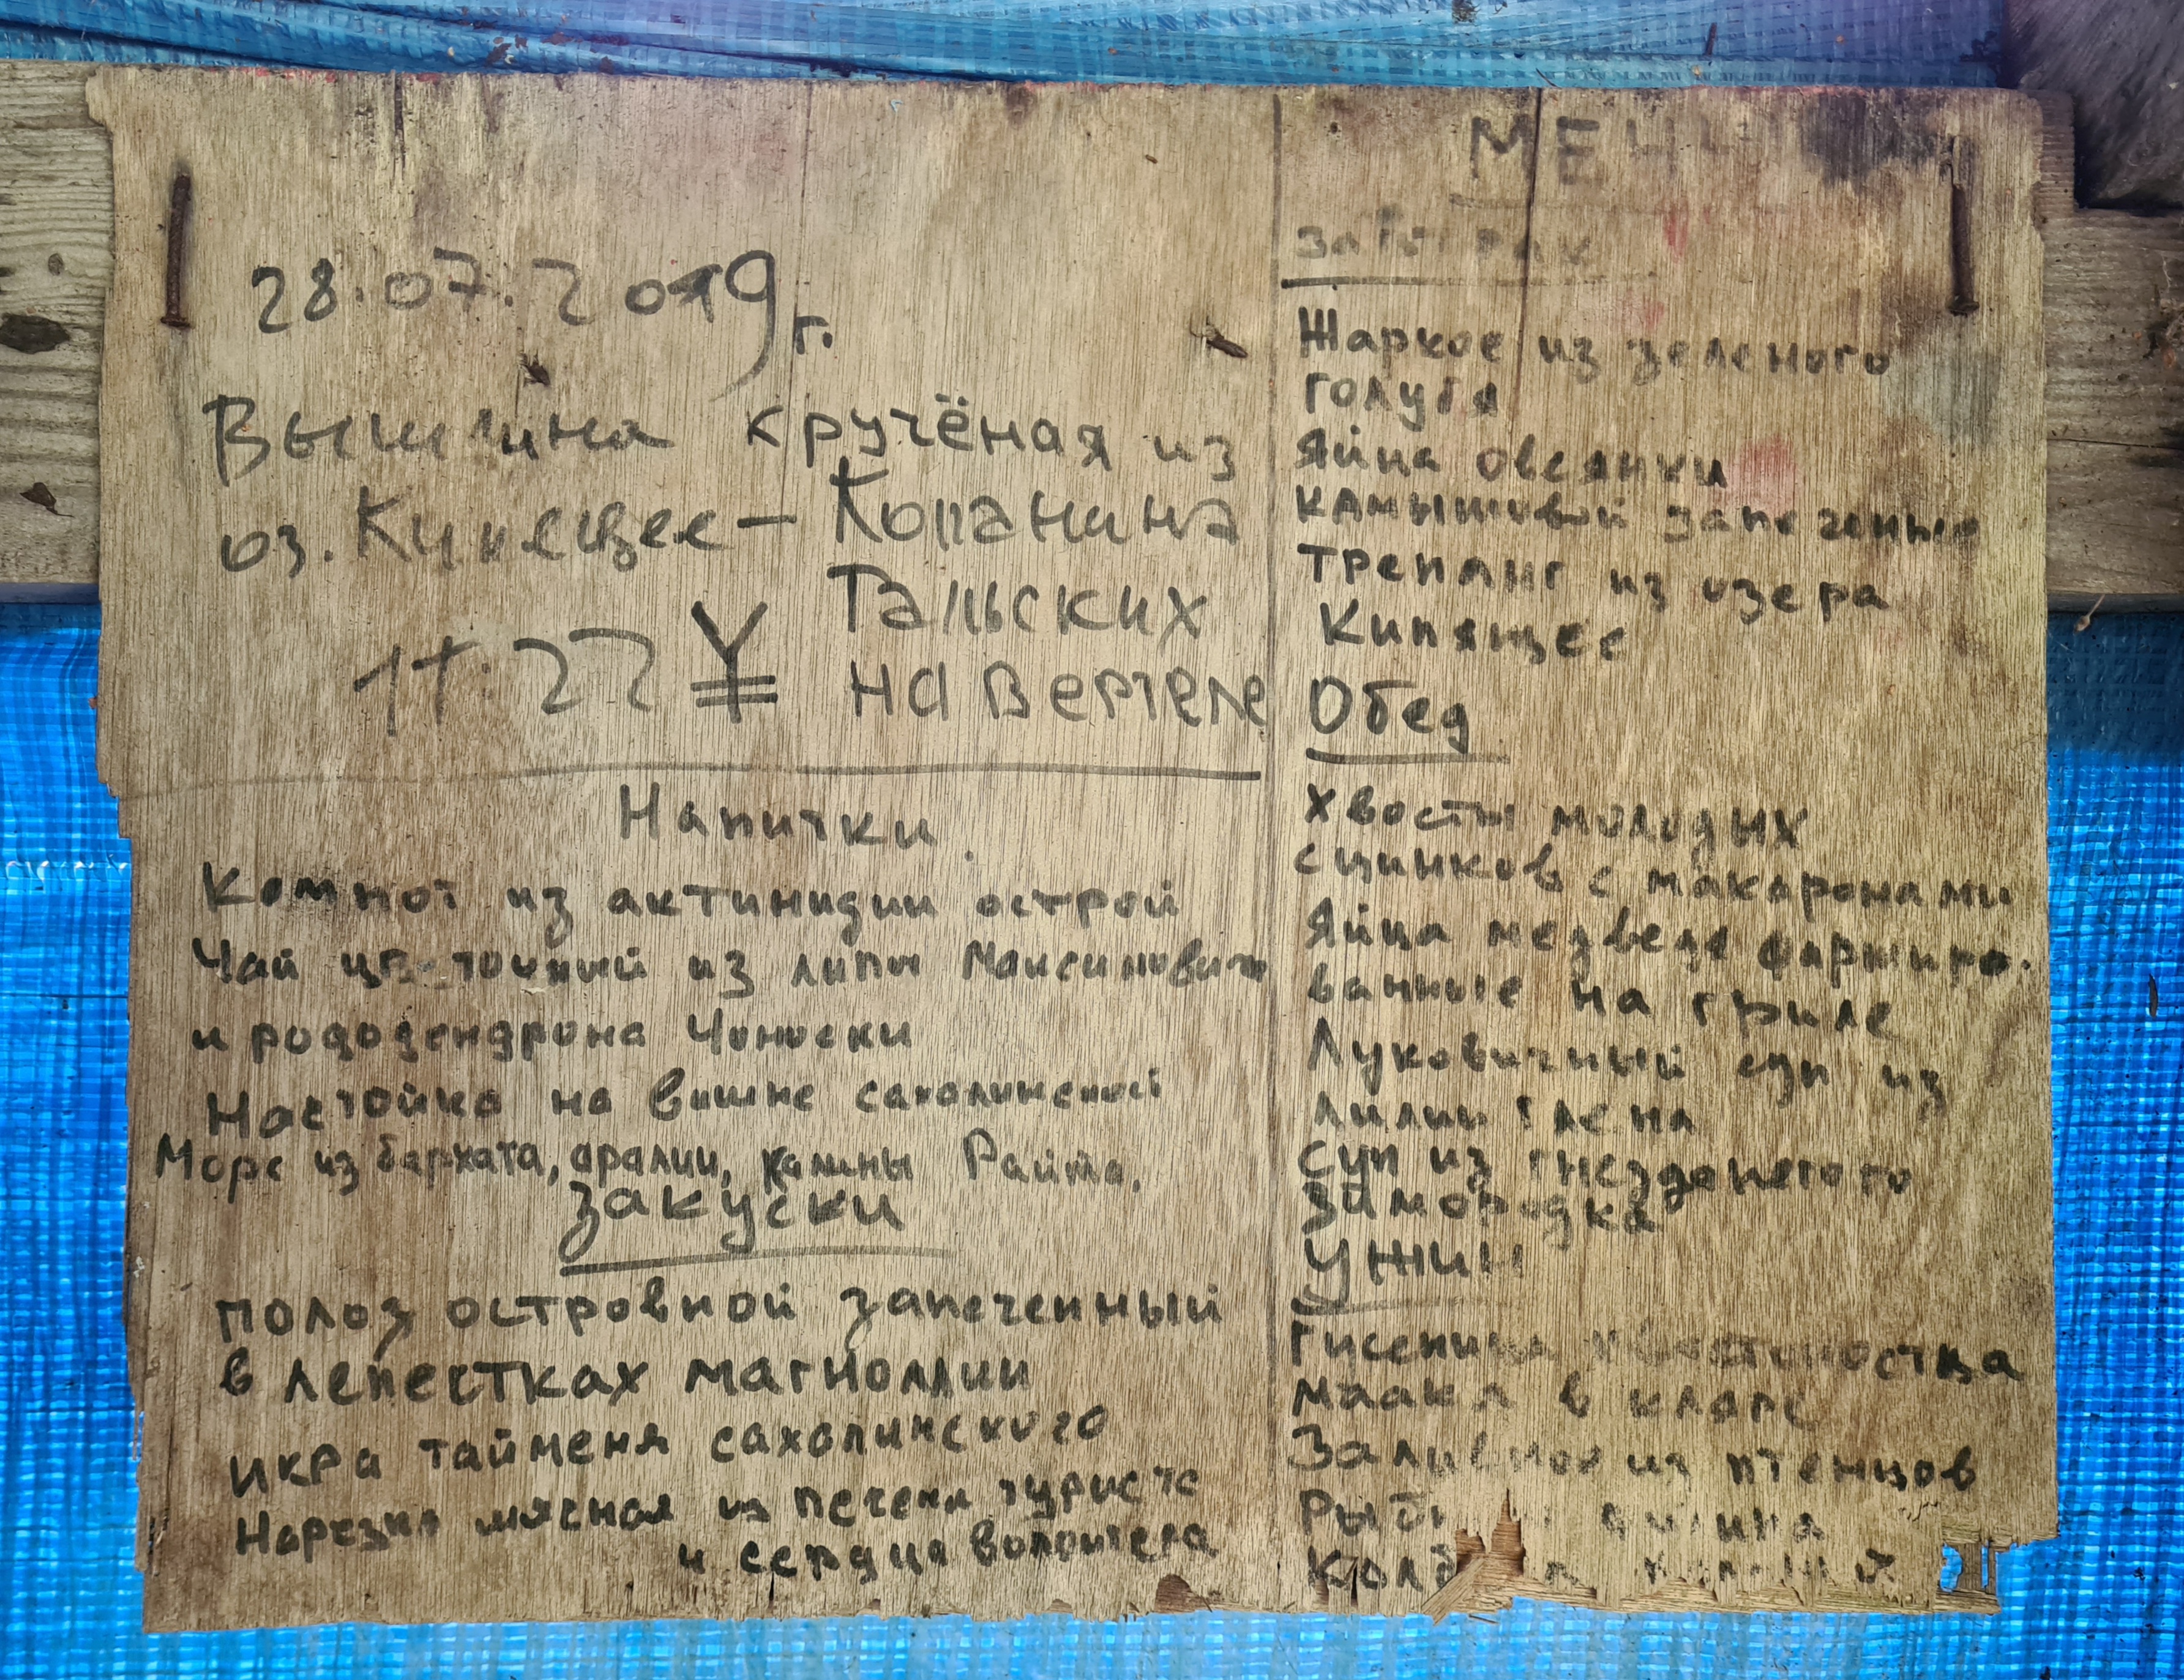 28.07.2019 г.
кручёная из
оз. Кипящее — Копанина
Тальских
¥ на вертеле
Напитки
Компот из актинидии острой
Чай цветочный из липы Максимовича
и рододендрона Чоноски
Настойка на вишне сахалинской
Морс из бархата, аралии, калины Райта.
закуски
полоз островной запеченный
в лепестках магноллии
икра тайменя сахалинского
Нарезка мясная из печени туриста
и сердца волонтера
МЕНЮ
завтрак
Жаркое из зеленого
голубя
Яйца овсянки
камышовой запеченные
трепанг из озера
Кипящее
Обед
хвосты молодых
сцинков с макаронами
Яйца медведя фарширо-
ванные на гриле
Луковичный суп из
лилии Глена
суп из гнезда пегого
зимородка
Ужин
Гусеница хвостоносца
маака в кляре
Заливное из птенцов